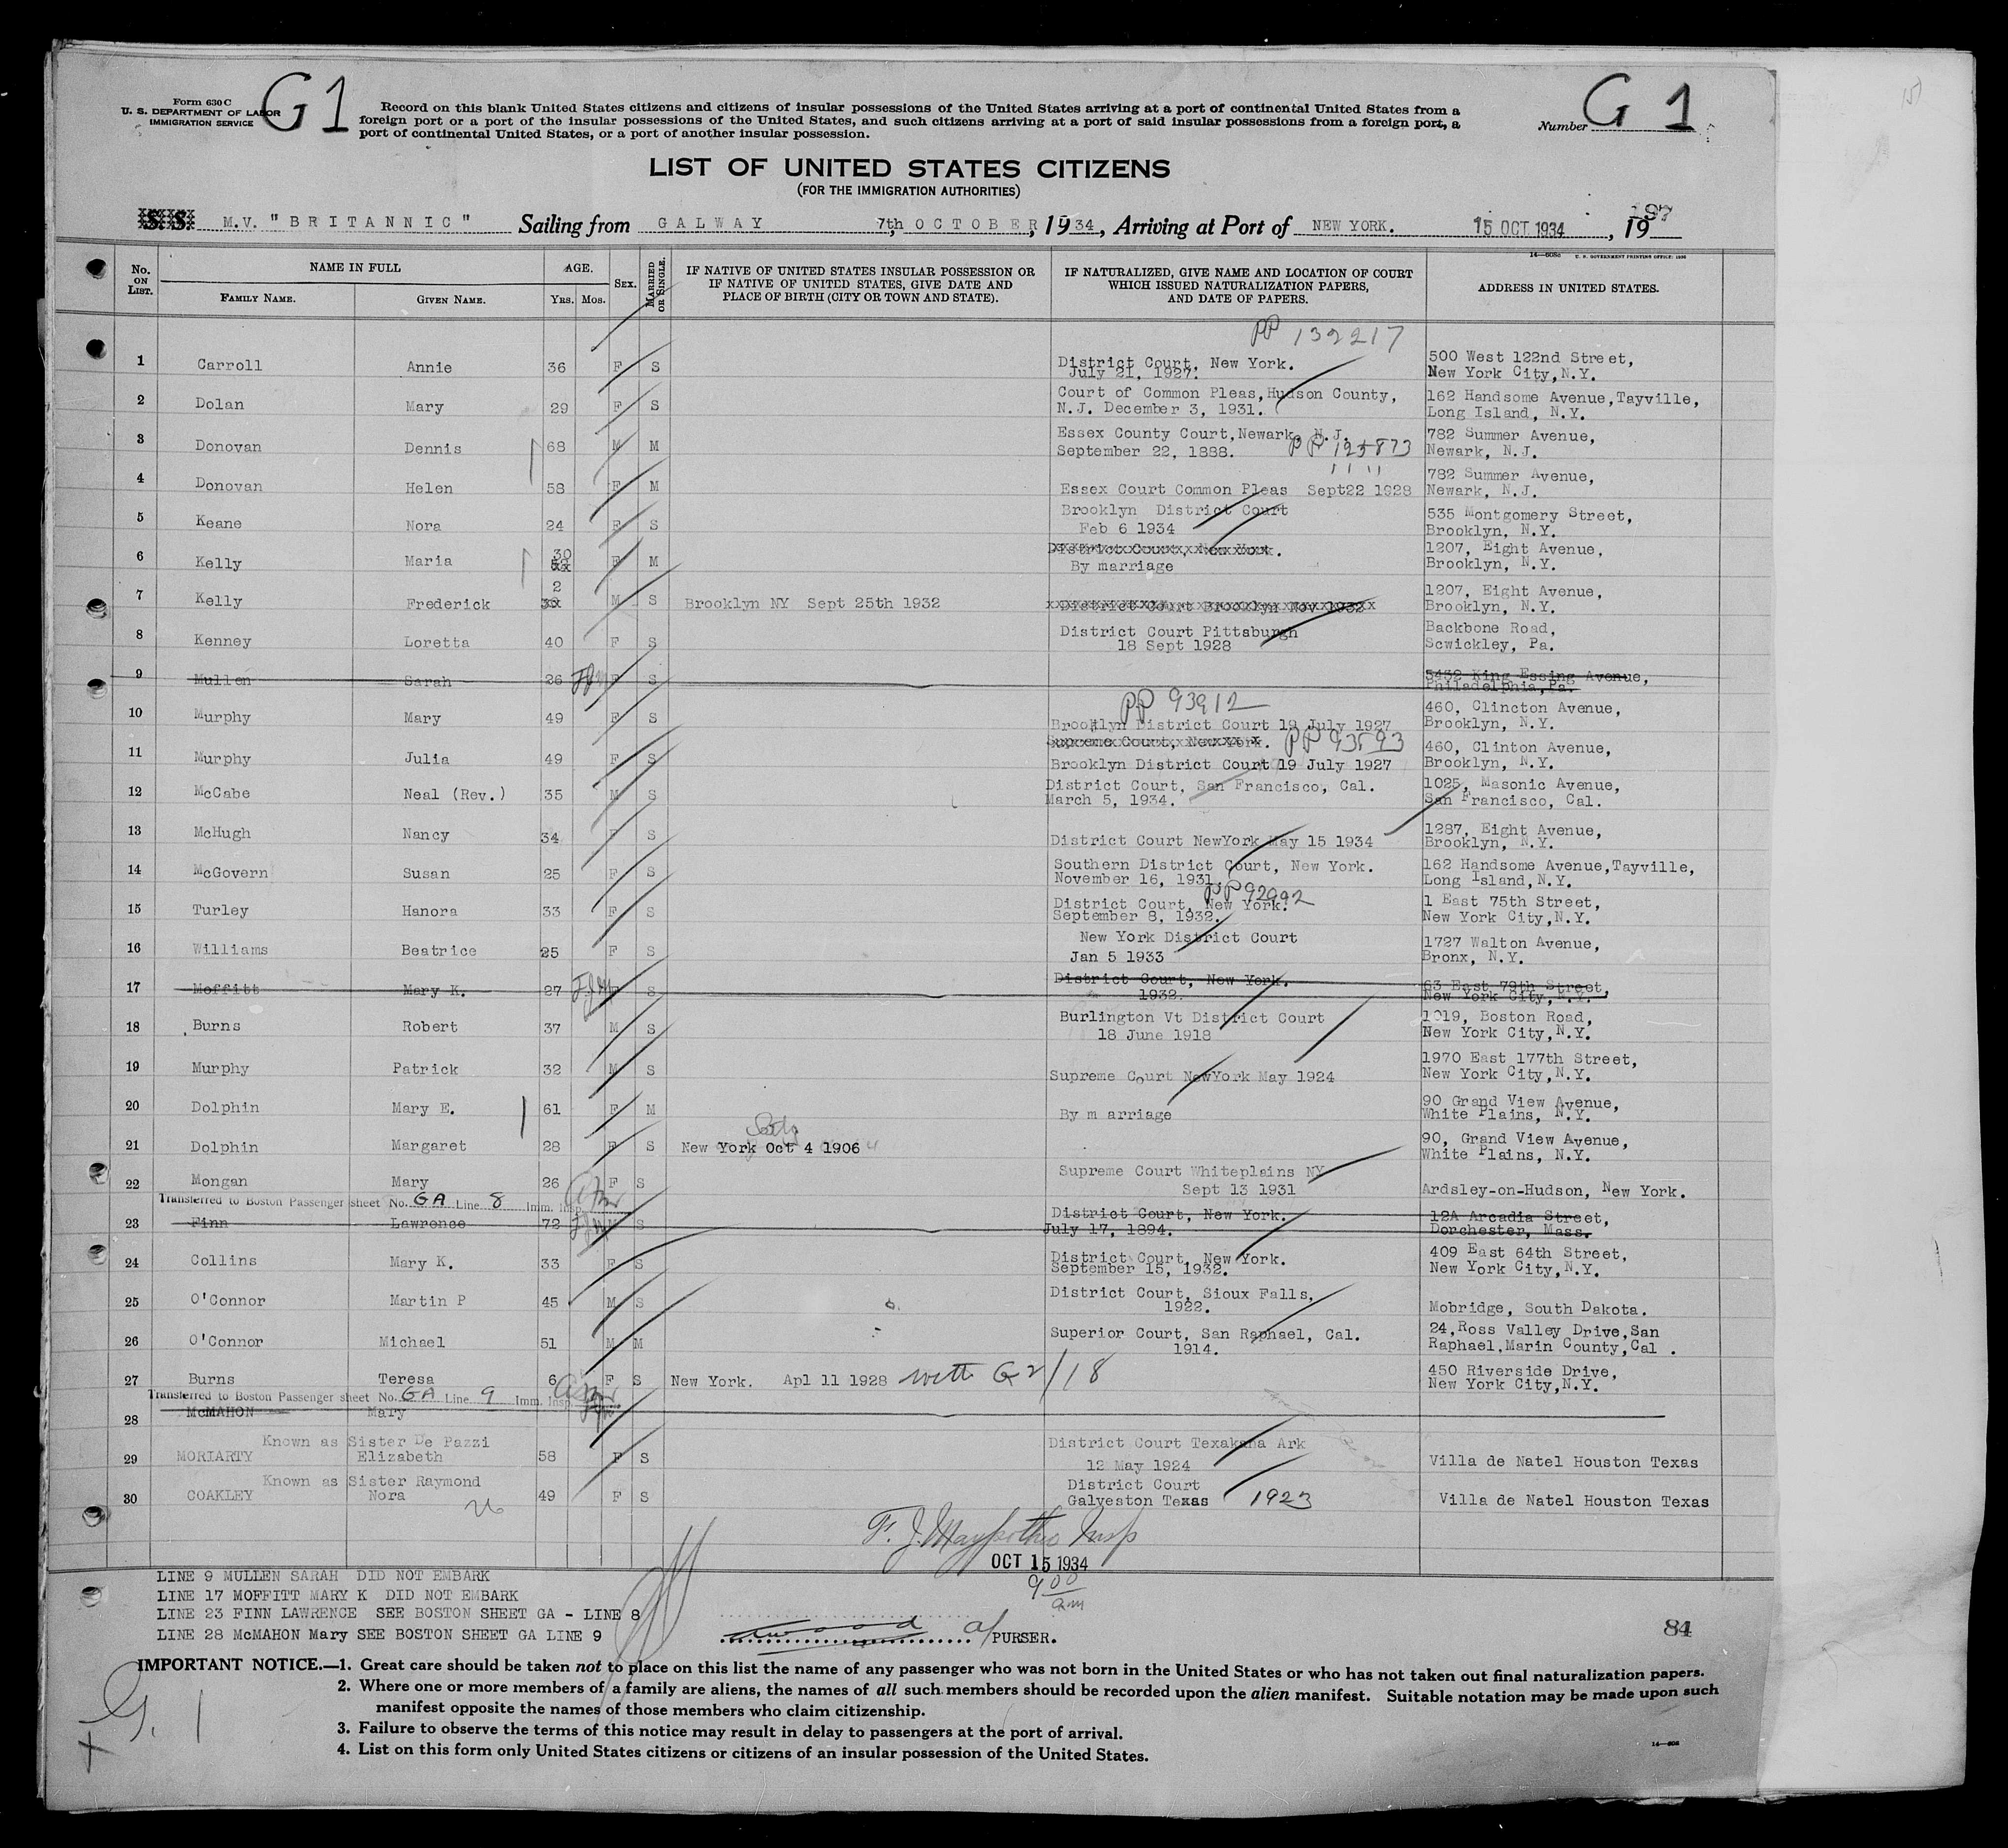 Form 630 C
U. S. DEPARTMENT OF LABOR
IMMIGRATION SERVICE
G1
Record on this blank United States citizens and citizens of insular possessions of the United States arriving at a port of continental United States from a
foreign port or a port of the insular possessions of the United States, and such citizens arriving at a port of said insular possessions from a foreign port, a
port of continental United States, or a port of another insular possession.
Number G 1
LIST OF UNITED STATES CITIZENS
(FOR THE IMMIGRATION AUTHORITIES)
S. S. M.V. "BRITANNIC" Sailing from GALWAY 7th OCTOBER, 1934, Arriving at Port of NEW YORK. 15 OCT 1934, 19
No. ON LIST. NAME IN FULL FAMILY NAME. GIVEN NAME. AGE. YRS. MOS. SEX. MARRIED OR SINGLE. IF NATIVE OF UNITED STATES INSULAR POSSESSION OR IF NATIVE OF UNITED STATES, GIVE DATE AND PLACE OF BIRTH (CITY OR TOWN AND STATE). IF NATURALIZED, GIVE NAME AND LOCATION OF COURT WHICH ISSUED NATURALIZATION PAPERS, AND DATE OF PAPERS. ADDRESS IN UNITED STATES.
PP 132217
1 Carroll Annie 36 F S District Court, New York. 500 West 122nd Street,
July 21, 1927. New York City, N.Y.
2 Dolan Mary 29 F S Court of Common Pleas, Hudson County, 162 Handsome Avenue, Tayville,
N.J. December 3, 1931. Long Island, N.Y.
3 Donovan Dennis 68 M M Essex County Court, Newark, N.J. 782 Summer Avenue,
September 22, 1888. PP 125873 Newark, N.J.
4 Donovan Helen 58 F M Essex Court Common Pleas Sept22 1928 782 Summer Avenue,
Newark, N.J.
5 Keane Nora 24 F S Brooklyn District Court 535 Montgomery Street,
Feb 6 1934 Brooklyn, N.Y.
6 Kelly Maria 30 F M District Court, New York. 1207, Eight Avenue,
By marriage Brooklyn, N.Y.
7 Kelly Frederick 2 M S Brooklyn NY Sept 25th 1932 District Court Brooklyn Nov 1932 1207, Eight Avenue,
Brooklyn, N.Y.
8 Kenney Loretta 40 F S District Court Pittsburgh Backbone Road,
18 Sept 1928 Scwickley, Pa.
9 Mullen Sarah 26 F S 5432 King Essing Avenue,
Philadelphia, Pa.
PP 93912
10 Murphy Mary 49 F S Brooklyn District Court 19 July 1927 460, Clincton Avenue,
Brooklyn, N.Y.
Supreme Court, New York. PP 93593
11 Murphy Julia 49 F S Brooklyn District Court 19 July 1927 460, Clinton Avenue,
Brooklyn, N.Y.
12 McCabe Neal (Rev.) 35 M S District Court, San Francisco, Cal. 1025, Masonic Avenue,
March 5, 1934. San Francisco, Cal.
13 McHugh Nancy 34 F S District Court NewYork May 15 1934 1287, Eight Avenue,
Brooklyn, N.Y.
14 McGovern Susan 25 F S Southern District Court, New York. 162 Handsome Avenue, Tayville,
November 16, 1931. Long Island, N.Y.
PP 92992
15 Turley Hanora 33 F S District Court, New York. 1 East 75th Street,
September 8, 1932. New York City, N.Y.
16 Williams Beatrice 25 F S New York District Court 1727 Walton Avenue,
Jan 5 1933 Bronx, N.Y.
17 Moffitt Mary K. 27 F S District Court, New York. 63 East 79th Street,
1932. New York City, N.Y.
18 Burns Robert 37 M S Burlington Vt District Court 1019, Boston Road,
18 June 1918 New York City, N.Y.
19 Murphy Patrick 32 M S Supreme Court NewYork May 1924 1970 East 177th Street,
New York City, N.Y.
20 Dolphin Mary E. 61 F M By m arriage 90 Grand View Avenue,
White Plains, N.Y.
21 Dolphin Margaret 28 F S New York Oct 4 1906 90, Grand View Avenue,
White Plains, N.Y.
22 Mongan Mary 26 F S Supreme Court Whiteplains NY
Sept 13 1931 Ardsley-on-Hudson, New York.
Transferred to Boston Passenger sheet No. GA Line 8 Imm. Insp.
23 Finn Lawrence 72 M S District Court, New York. 12A Arcadia Street,
July 17, 1894. Dorchester, Mass.
24 Collins Mary K. 33 F S District Court, New York. 409 East 64th Street,
September 15, 1932. New York City, N.Y.
25 O'Connor Martin P 45 M S District Court, Sioux Falls,
1922. Mobridge, South Dakota.
26 O'Connor Michael 51 M M Superior Court, San Raphael, Cal. 24, Ross Valley Drive, San
1914. Raphael, Marin County, Cal .
27 Burns Teresa 6 F S New York. Apl 11 1928 with G2/18 450 Riverside Drive,
New York City, N.Y.
Transferred to Boston Passenger sheet No. GA Line 9 Imm. Insp.
28 McMAHON Mary
Known as Sister De Pazzi District Court Texakana Ark
29 MORIARTY Elizabeth 58 F S 12 May 1924 Villa de Natel Houston Texas
Known as Sister Raymond District Court
30 COAKLEY Nora 49 F S Galveston Texas 1923 Villa de Natel Houston Texas
OCT 15 1934
9 00 am
LINE 9 MULLEN SARAH DID NOT EMBARK
LINE 17 MOFFITT MARY K DID NOT EMBARK
LINE 23 FINN LAWRENCE SEE BOSTON SHEET GA - LINE 8
LINE 28 McMAHON Mary SEE BOSTON SHEET GA LINE 9
a/PURSER.
84
IMPORTANT NOTICE.—1. Great care should be taken not to place on this list the name of any passenger who was not born in the United States or who has not taken out final naturalization papers.
2. Where one or more members of a family are aliens, the names of all such members should be recorded upon the alien manifest. Suitable notation may be made upon such
manifest opposite the names of those members who claim citizenship.
3. Failure to observe the terms of this notice may result in delay to passengers at the port of arrival.
4. List on this form only United States citizens or citizens of an insular possession of the United States.
G. 1